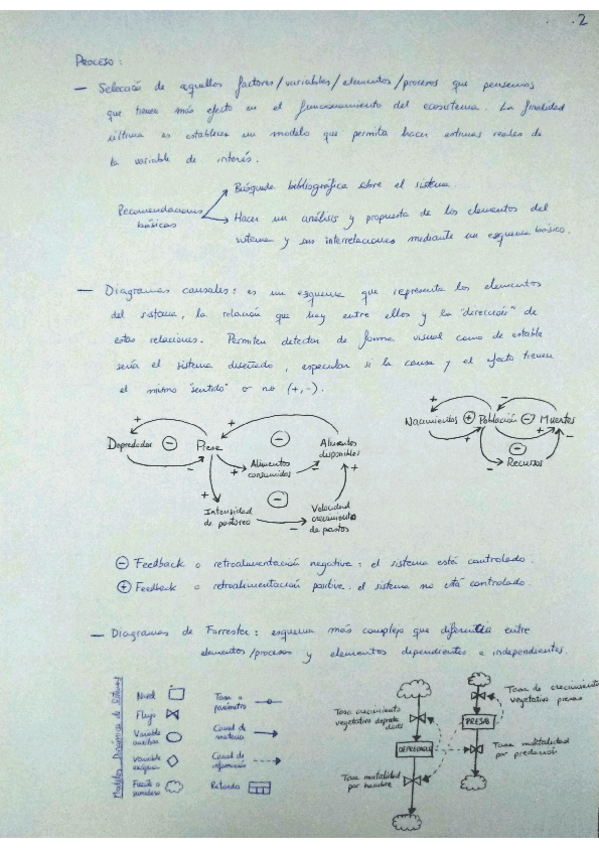 2
PROCESO:
— Selección de aquellos factores/variables/elementos/procesos que pensemos
que tienen más efecto en el funcionamiento del ecosistema. La finalidad
última es establecer un modelo que permita hacer estimas reales de
la variable de interés.
Recomendaciones básicas
Búsqueda bibliográfica sobre el sistema
Hacer un análisis y propuesta de los elementos del
sistema y sus interrelaciones mediante un esquema básico.
— Diagramas causales: es un esquema que representa los elementos
del sistema, la relación que hay entre ellos y la "dirección" de
estas relaciones. Permiten detectar de forma visual como de estable
sería el sistema diseñado, especular si la causa y el efecto tienen
el mismo "sentido" o no (+,-).
Depredador
Presa
Alimentos consumidos
Alimentos disponibles
Intensidad de pastoreo
Velocidad crecimiento de pastos
Nacimientos
Población
Muertes
Recursos
⊖ Feedback o retroalimentación negativa: el sistema está controlado.
⊕ Feedback o retroalimentación positiva: el sistema no está controlado.
— Diagramas de Forrester: esquema más complejo que diferencia entre
elementos/procesos y elementos dependientes e independientes.
Modelos Dinámicos de Sistemas
Nivel
Flujo
Variable auxiliar
Variable exógena
Fuente o sumidero
Tasa o parámetro
Canal de materia
Canal de información
Retardo
Tasa crecimiento
vegetativo depredadores
DEPREDADOR
Tasa mortalidad
por hambre
Tasa de crecimiento
vegetativo presas
PRESA
Tasa mortalidad
por predación